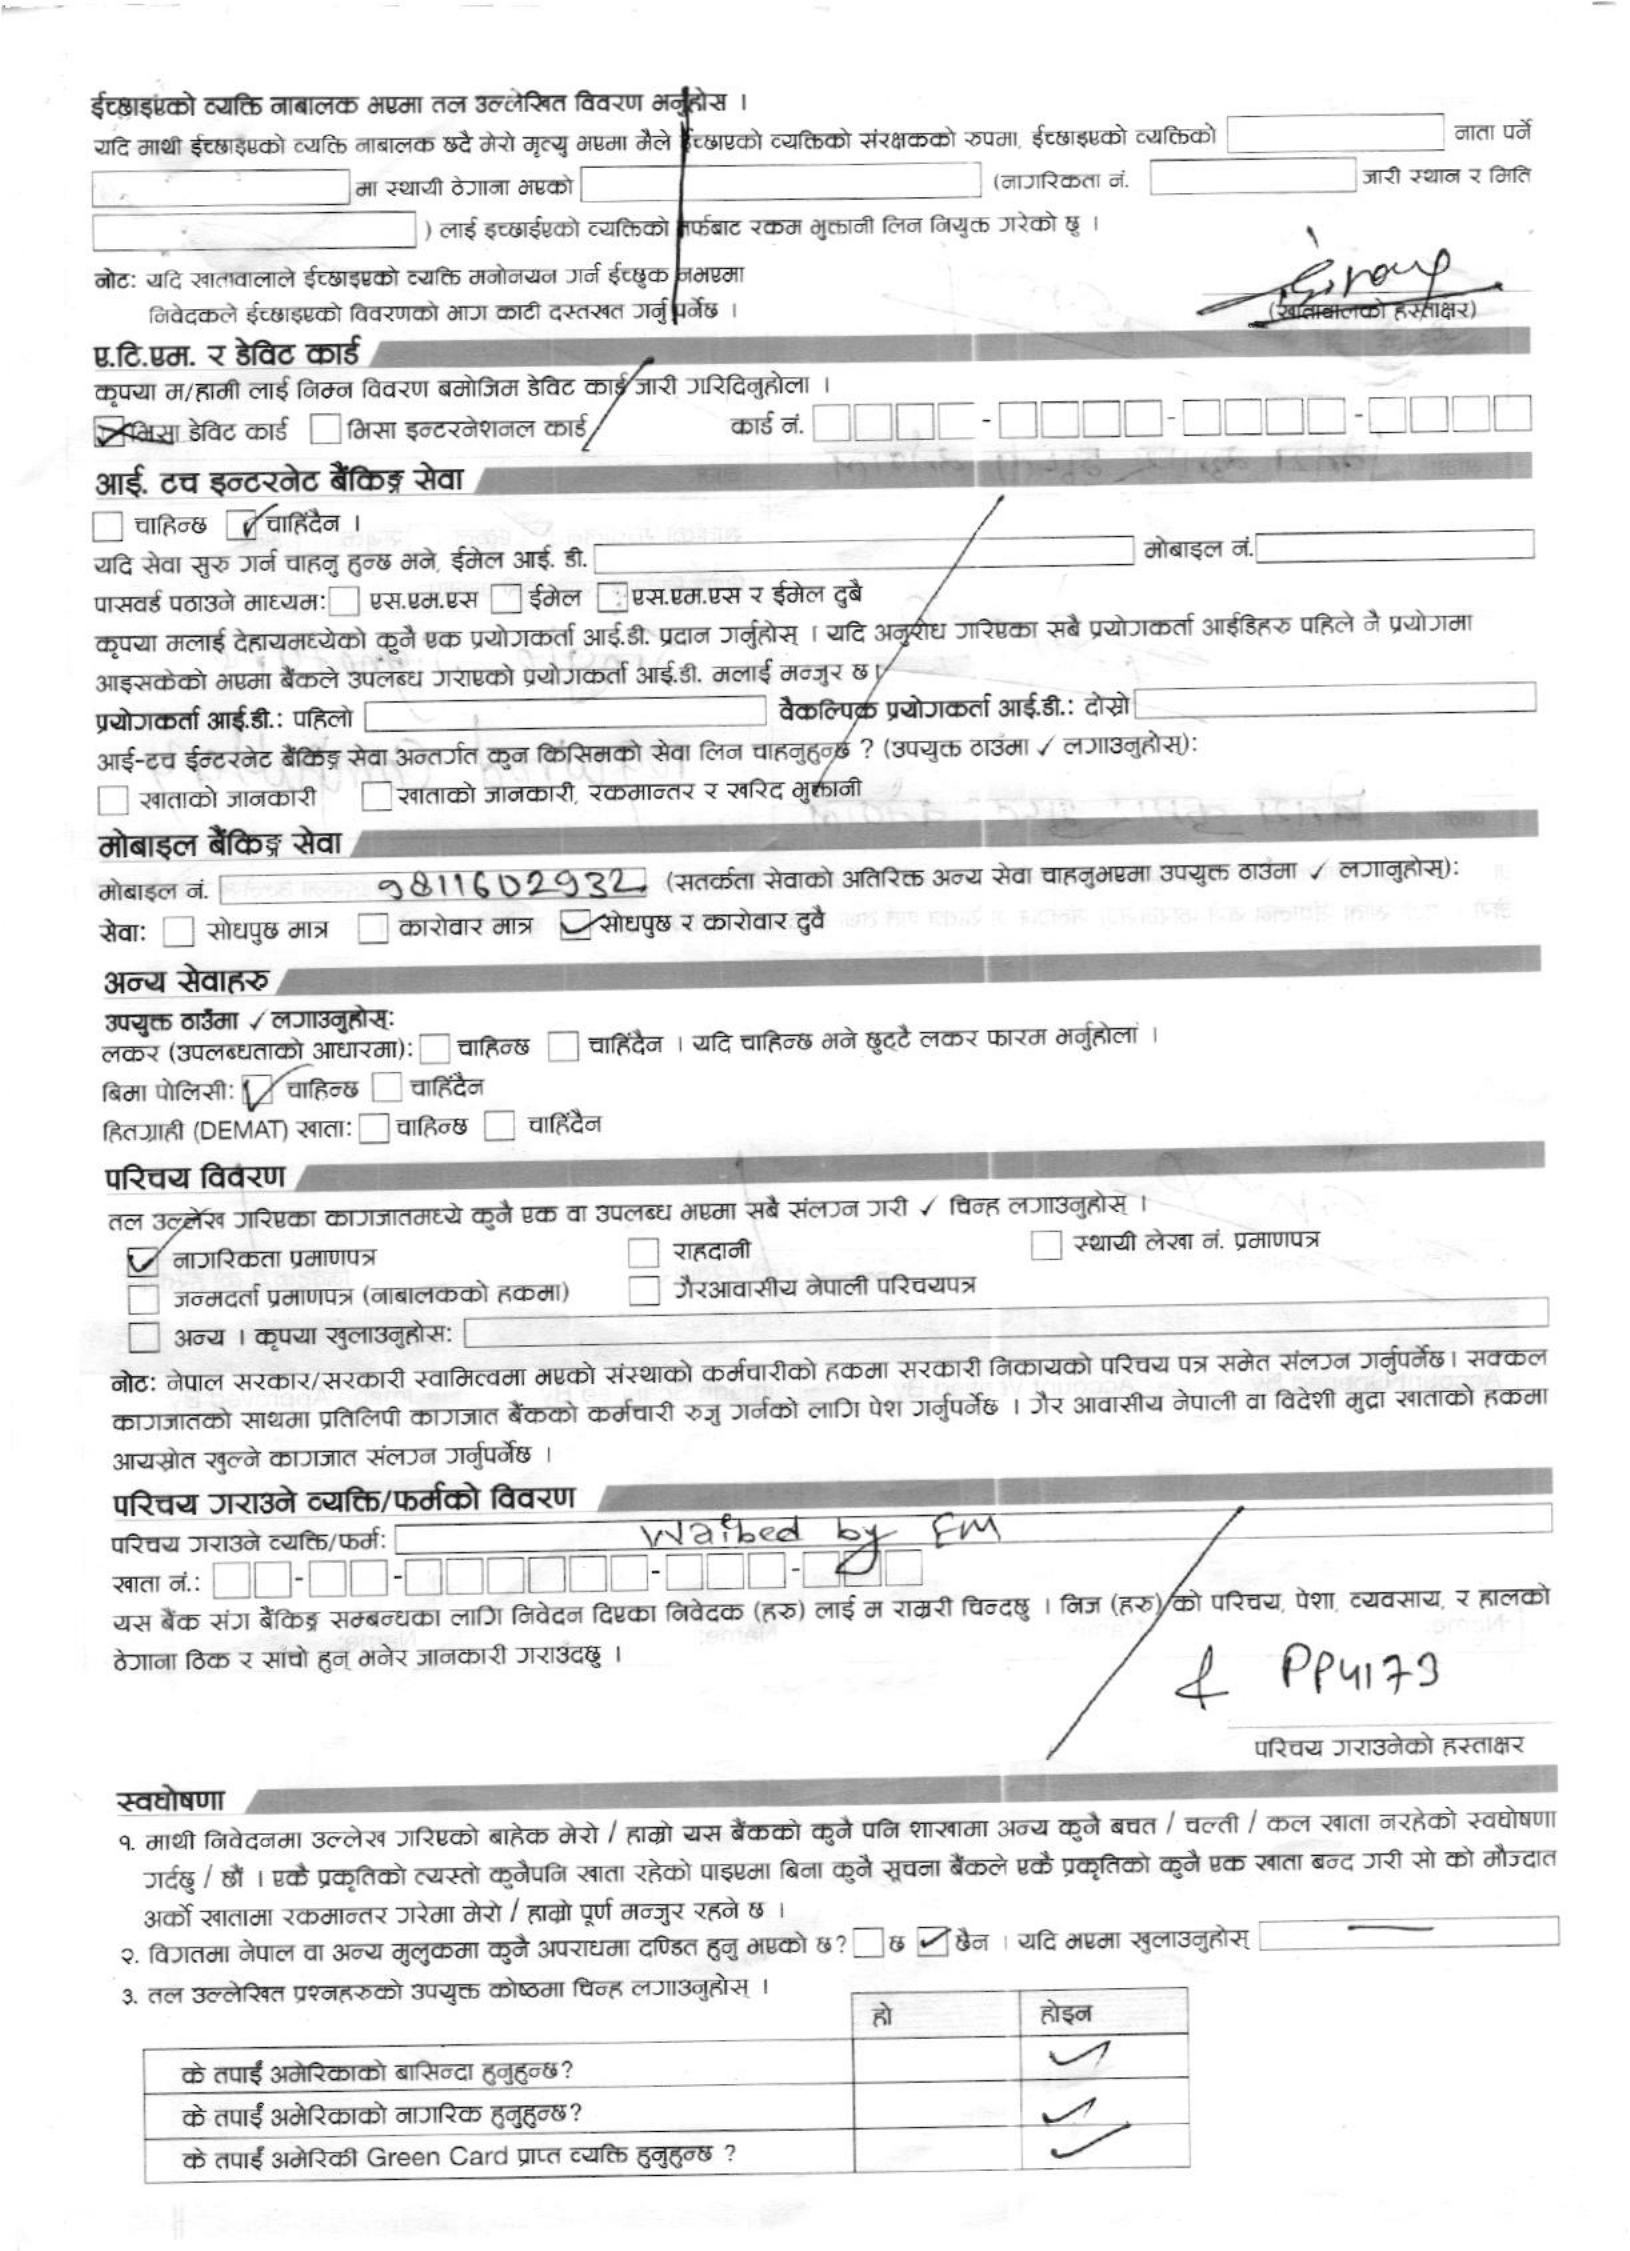 ईच्छाइएको व्यक्ति नाबालक भएमा तल उल्लेखित विवरण भर्नुहोस ।
यदि माथी ईच्छाईएको व्यक्ति नाबालक छदै मेरो मृत्यु भएमा मैले ईच्छाएको व्यक्तिको संरक्षकको रुपमा, ईच्छाइएको व्यक्तिको नाता पर्ने
मा स्थायी ठेगाना भएको (नागरिकता नं. जारी स्थान र मिति
) लाई इच्छाईएको व्यक्तिको तर्फबाट रकम भुक्तानी लिन नियुक्त गरेको छु ।
नोट: यदि खातावालाले ईच्छाइएको व्यक्ति मनोनयन गर्न ईच्छुक नभएमा
निवेदकले ईच्छाइएको विवरणको भाग काटी दस्तखत गर्नु पर्नेछ ।
(खातावालको हस्ताक्षर)
ए.टि.एम. र डेविट कार्ड
कृपया म/हामी लाई निम्न विवरण बमोजिम डेविट कार्ड जारी गरिदिनुहोला ।
भिसा डेविट कार्ड भिसा इन्टरनेशनल कार्ड कार्ड नं. - - -
आई. टच इन्टरनेट बैंकिङ्ग सेवा
चाहिन्छ ✓ चाहिंदैन ।
यदि सेवा सुरु गर्न चाहनु हुन्छ भने, ईमेल आई. डी. मोबाइल नं.
पासवर्ड पठाउने माध्यम: एस.एम.एस ईमेल एस.एम.एस र ईमेल दुबै
कृपया मलाई देहायमध्येको कुनै एक प्रयोगकर्ता आई.डी. प्रदान गर्नुहोस् । यदि अनुरोध गरिएका सबै प्रयोगकर्ता आईडिहरु पहिले नै प्रयोगमा
आइसकेको भएमा बैंकले उपलब्ध गराएको प्रयोगकर्ता आई.डी. मलाई मन्जुर छ ।
प्रयोगकर्ता आई.डी.: पहिलो वैकल्पिक प्रयोगकर्ता आई.डी.: दोस्रो
आई-टच ईन्टरनेट बैंकिङ्ग सेवा अन्तर्गत कुन किसिमको सेवा लिन चाहनुहुन्छ ? (उपयुक्त ठाउँमा ✓ लगाउनुहोस्):
खाताको जानकारी खाताको जानकारी, रकमान्तर र खरिद भुक्तानी
मोबाइल बैंकिङ्ग सेवा
मोबाइल नं. 9811602932 (सतर्कता सेवाको अतिरिक्त अन्य सेवा चाहनुभएमा उपयुक्त ठाउँमा ✓ लगानुहोस्):
सेवा: सोधपुछ मात्र कारोवार मात्र ✓ सोधपुछ र कारोवार दुवै
अन्य सेवाहरु
उपयुक्त ठाउँमा ✓ लगाउनुहोस्:
लकर (उपलब्धताको आधारमा): चाहिन्छ चाहिंदैन । यदि चाहिन्छ भने छुट्टै लकर फारम भर्नुहोला ।
बिमा पोलिसी: ✓ चाहिन्छ चाहिंदैन
हितग्राही (DEMAT) खाता: चाहिन्छ चाहिंदैन
परिचय विवरण
तल उल्लेख गरिएका कागजातमध्ये कुनै एक वा उपलब्ध भएमा सबै संलग्न गरी ✓ चिन्ह लगाउनुहोस् ।
✓ नागरिकता प्रमाणपत्र राहदानी स्थायी लेखा नं. प्रमाणपत्र
जन्मदर्ता प्रमाणपत्र (नाबालकको हकमा) गैरआवासीय नेपाली परिचयपत्र
अन्य । कृपया खुलाउनुहोस:
नोट: नेपाल सरकार/सरकारी स्वामित्वमा भएको संस्थाको कर्मचारीको हकमा सरकारी निकायको परिचय पत्र समेत संलग्न गर्नुपर्नेछ। सक्कल
कागजातको साथमा प्रतिलिपी कागजात बैंकको कर्मचारी रुजु गर्नको लागि पेश गर्नुपर्नेछ । गैर आवासीय नेपाली वा विदेशी मुद्रा खाताको हकमा
आयस्रोत खुल्ने कागजात संलग्न गर्नुपर्नेछ ।
परिचय गराउने व्यक्ति/फर्मको विवरण
परिचय गराउने व्यक्ति/फर्म: Waibed by FM
खाता नं.: - - - -
यस बैंक संग बैंकिङ्ग सम्बन्धका लागि निवेदन दिएका निवेदक (हरु) लाई म राम्ररी चिन्दछु । निज (हरु) को परिचय, पेशा, व्यवसाय, र हालको
ठेगाना ठिक र सांचो हुन् भनेर जानकारी गराउँदछु ।
PP4173
परिचय गराउनेको हस्ताक्षर
स्वघोषणा
१. माथी निवेदनमा उल्लेख गरिएको बाहेक मेरो / हाम्रो यस बैंकको कुनै पनि शाखामा अन्य कुनै बचत / चल्ती / कल खाता नरहेको स्वघोषणा
गर्दछु / छौं । एकै प्रकृतिको त्यस्तो कुनैपनि खाता रहेको पाइएमा बिना कुनै सूचना बैंकले एकै प्रकृतिको कुनै एक खाता बन्द गरी सो को मौज्दात
अर्को खातामा रकमान्तर गरेमा मेरो / हाम्रो पूर्ण मन्जुर रहने छ ।
२. विगतमा नेपाल वा अन्य मुलुकमा कुनै अपराधमा दण्डित हुनु भएको छ? छ ✓ छैन । यदि भएमा खुलाउनुहोस्
३. तल उल्लेखित प्रश्नहरुको उपयुक्त कोष्ठमा चिन्ह लगाउनुहोस् ।
हो होइन
के तपाईं अमेरिकाको बासिन्दा हुनुहुन्छ? ✓
के तपाईं अमेरिकाको नागरिक हुनुहुन्छ? ✓
के तपाईं अमेरिकी Green Card प्राप्त व्यक्ति हुनुहुन्छ ? ✓